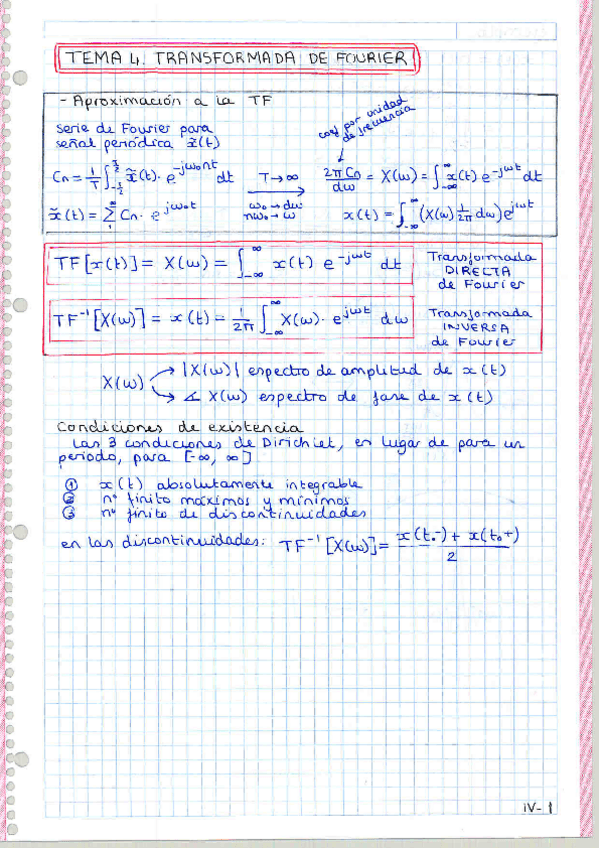 TEMA 4. TRANSFORMADA DE FOURIER
- Aproximación a la TF
Serie de Fourier para
señal periódica x̃(t)
coef por unidad
de frecuencia
Cn = 1/T ∫_{-T/2}^{T/2} x̃(t) · e^{-jω₀nt} dt   T→∞   2πCn/dω = X(ω) = ∫_{-∞}^{∞} x(t) e^{-jωt} dt
x̃(t) = Σ_{1}^{∞} Cn · e^{jω₀t}   ω₀→dω nω₀→ω   x(t) = ∫_{-∞}^{∞} (X(ω) 1/2π dω) e^{jωt}
TF[x(t)] = X(ω) = ∫_{-∞}^{∞} x(t) e^{-jωt} dt   Transformada
DIRECTA
de Fourier
TF⁻¹[X(ω)] = x(t) = 1/2π ∫_{-∞}^{∞} X(ω) · e^{jωt} dω   Transformada
INVERSA
de Fourier
X(ω) → |X(ω)| espectro de amplitud de x(t)
→ ∡ X(ω) espectro de fase de x(t)
Condiciones de existencia
Las 3 condiciones de Dirichlet, en lugar de para un
periodo, para [-∞, ∞]
① x(t) absolutamente integrable
② nº finito máximos y mínimos
③ nº finito de discontinuidades
en las discontinuidades: TF⁻¹[X(ω)] = x(t₀-) + x(t₀+) / 2
IV-1